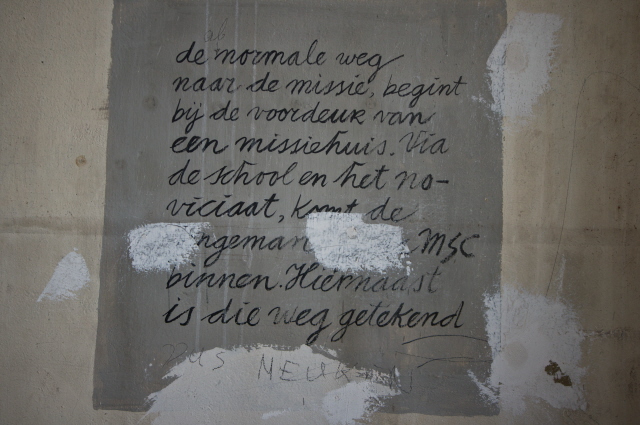 de normale weg
naar de missie, begint
bij de voordeur van
een missiehuis. Via
de school en het no-
viciaat, komt de
MSC
binnen. Hiernaast
is die weg getekend